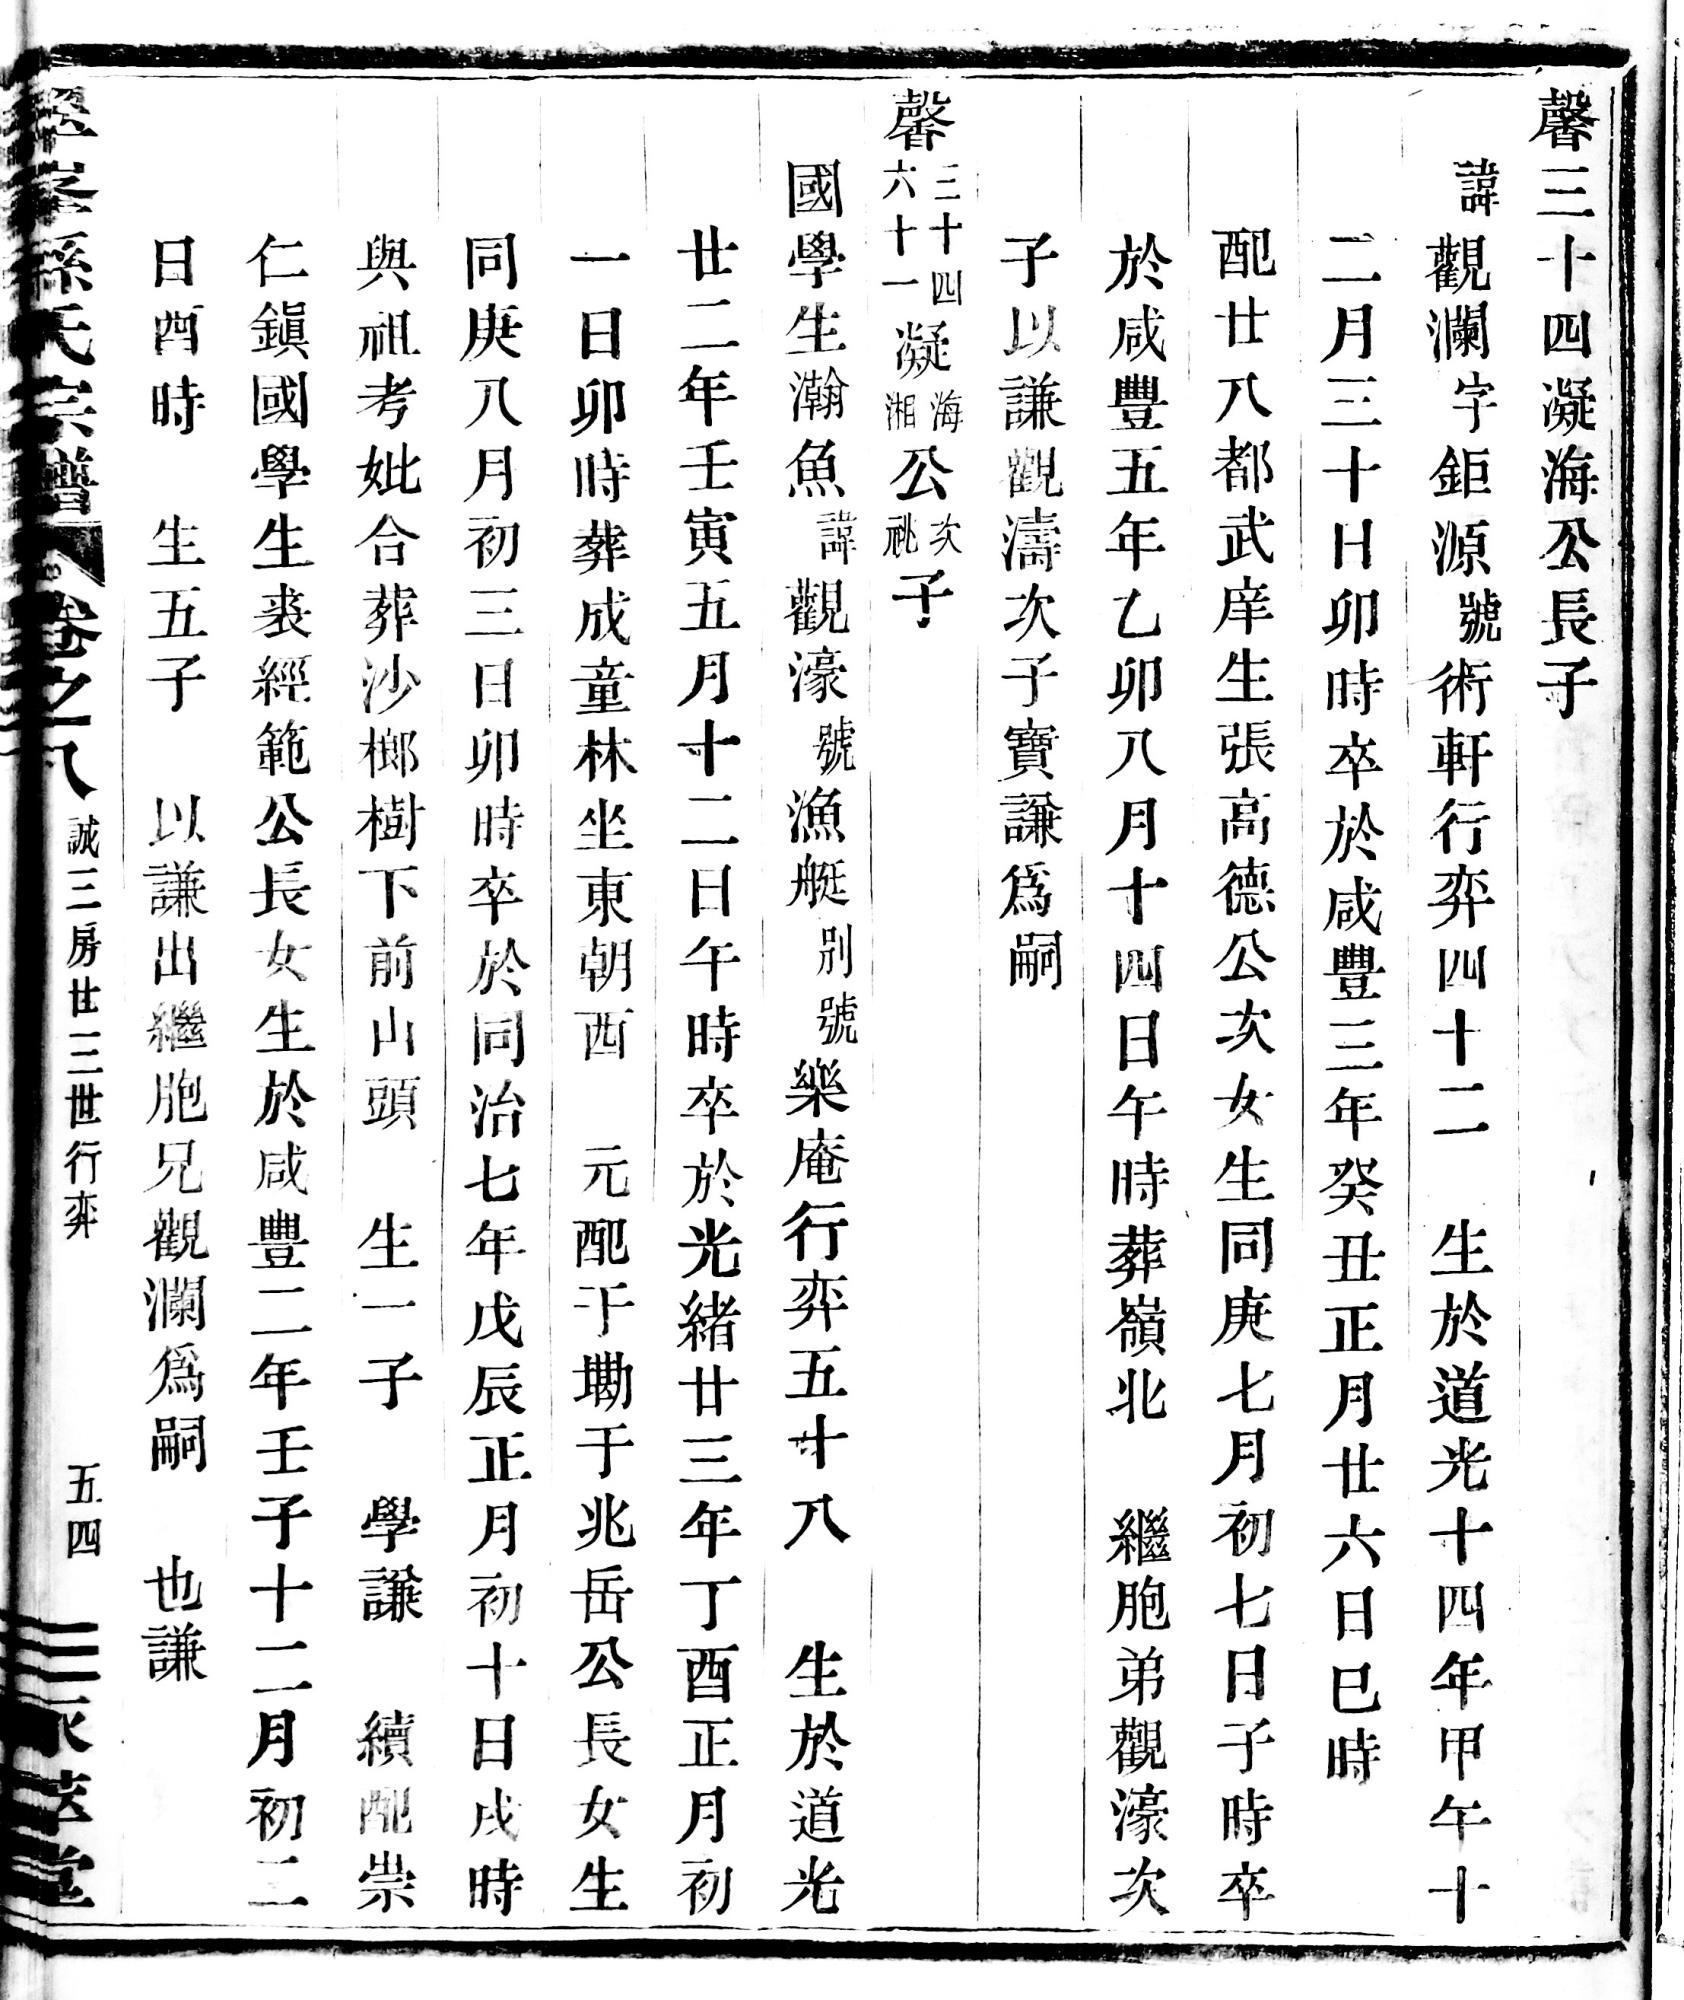 馨三十四凝海公長子
諱觀瀾字鉅源號術軒行弈四十二　生於道光十四年甲午十
二月三十日卯時卒於咸豐三年癸丑正月廿六日巳時
配廿八都武庠生張高德公次女生同庚七月初七日子時卒
於咸豐五年乙卯八月十四日午時葬嶺北　繼胞弟觀濠次
子以謙觀濤次子寶謙爲嗣
馨三十四六十一凝海湘公次祧子
國學生瀚魚諱觀濠號漁艇別號樂庵行弈五十八　生於道光
廿二年壬寅五月十二日午時卒於光緒廿三年丁酉正月初
一日卯時葬成童林坐東朝西　元配干墈于兆岳公長女生
同庚八月初三日卯時卒於同治七年戊辰正月初十日戌時
與祖考妣合葬沙榔樹下前山頭　生一子　學謙　續配崇
仁鎭國學生裘經範公長女生於咸豐二年壬子十二月初二
日酉時　生五子　以謙出繼胞兄觀瀾爲嗣　也謙
孫氏宗譜　卷之八　誠三房廿三世行弈　五四　萃堂